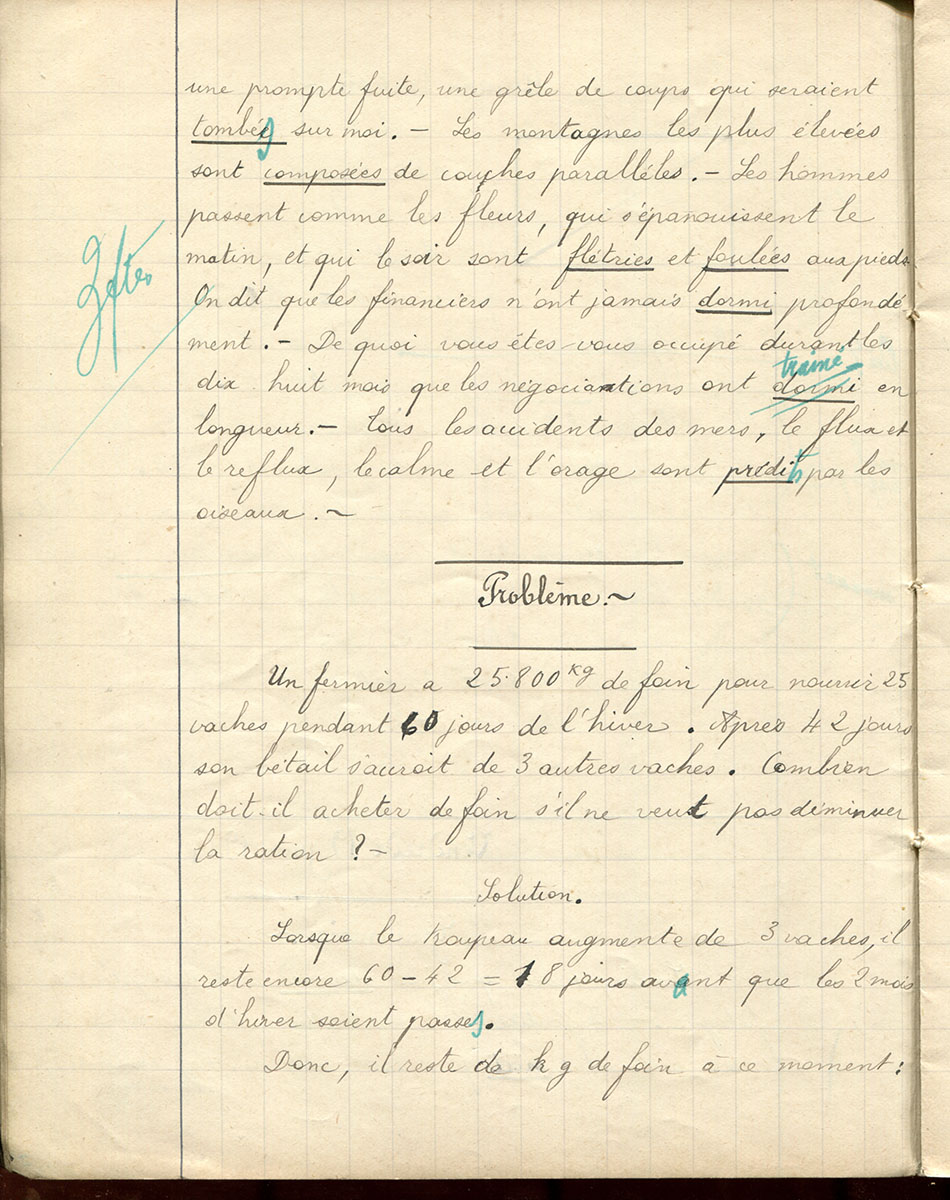 une prompte fuite, une grêle de coups qui seraient
tombées sur moi. — Les montagnes les plus élevées
sont composées de couches parallèles. — Les hommes
passent comme les fleurs, qui s'épanouissent le
matin, et qui le soir sont flétries et foulées aux pieds.
On dit que les financiers n'ont jamais dormi profondé
ment. — De quoi vous êtes-vous occupé durant les
traîné
dix huit mois que les négociations ont dormi en
longueur. — Tous les accidents des mers, le flux et
le reflux, le calme et l'orage sont prédits par les
oiseaux. ~
2 ftes
Problème. ~
Un fermier a 25.800 kg de foin pour nourrir 25
vaches pendant 60 jours de l'hiver. Après 42 jours
son bétail s'accroit de 3 autres vaches. Combien
doit-il acheter de foin s'il ne veut pas diminuer
la ration ? —
Solution.
Lorsque le troupeau augmente de 3 vaches, il
reste encore 60 - 42 = 18 jours avant que les 2 mois
d'hiver soient passés.
Donc, il reste de kg de foin à ce moment :